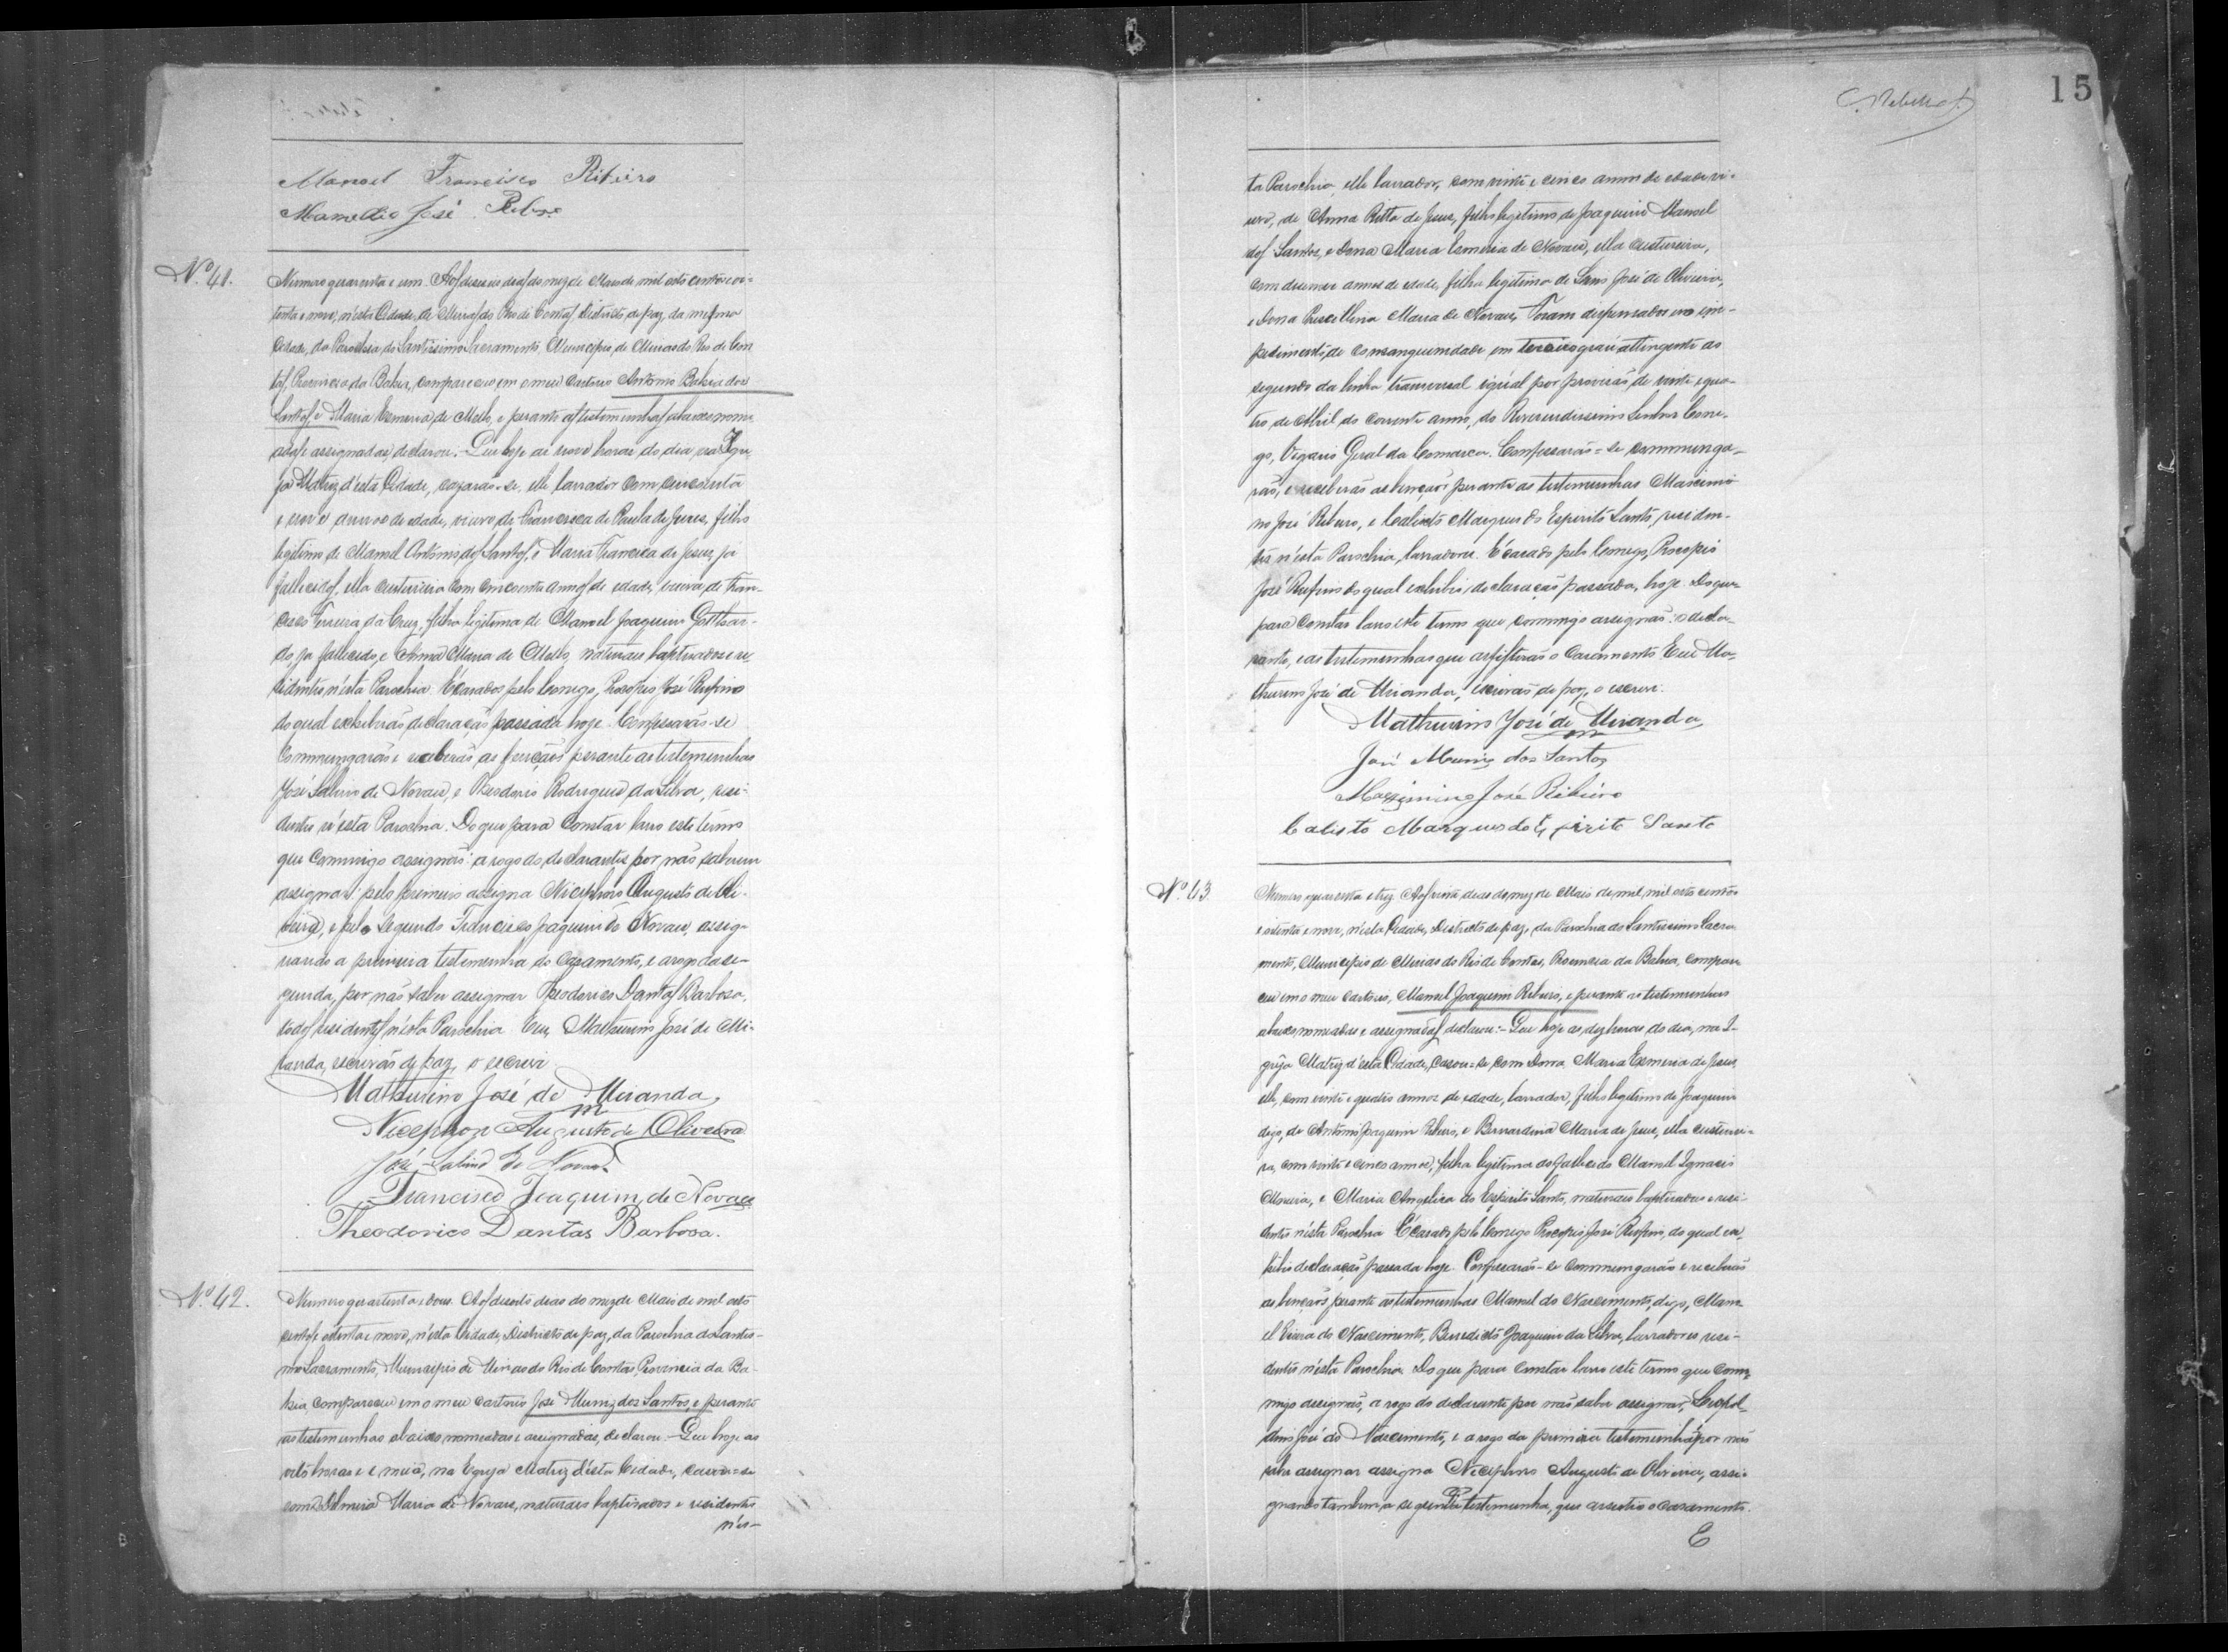 Manoel Francisco Ribeiro
Mamedio José
Nº 41.
Numero quarenta e um. Aos dias do mez de Maio de mil oito centos oi-
tenta e nove, n'esta Cidade de Minas do Rio de Contas, Districto de paz, da mesma
Cidade, da Parochia do Santissimo Sacramento, Municipio de Minas do Rio de Con
tas, Provincia da Bahia, compareceu em o meu Cartorio Antonio Bahia dos
Santos e Maria Esmeria de Mello, e perante as testemunhas abaixo nome-
adas e assignadas, declarou:- Que hoje as nove horas do dia, na Igre-
ja Matriz d'esta Cidade, cazarão-se, elle lavrador com cincoenta
e nove annos de edade, viuvo de Francisca de Paula de Jesus, filho
legitimo de Manoel Antonio dos Santos, e Maria Francisca de Jesus, já
fallecidos, ella custureira com cincoenta annos de edade, viuva de Fran-
cisco Ferreira da Cruz, filha legitima de Manoel Joaquim Gotthar-
do, ja fallecido, e Anna Maria de Mello, naturaes baptisados e re-
sidentes n'esta Parochia. E casados pelo Conego, Procopio José Rufino
do qual exhibirão declaração passada hoje. Confessarão-se
Commungarão e receberão as benções perante as testemunhas
José Salino de Novaes, e Theodorio Rodrigues da Silva, resi-
dentes n'esta Parochia. Do que para constar lavro este termo
que commigo assignão: a rogo do declarantes por não saberem
assignar: pelo primeiro assigna Nicephoro Augusto de Oli-
veira, e pelo segundo Francisco Joaquim de Novaes, assig-
nando a primeira testemunha do Casamento, e a rogo da se-
gunda, por não saber assignar Theodorico Dantas Barbosa,
todos residentes n'esta Parochia Eu, Mathurino José de Mi-
randa, escrivão de paz, o escrevi
Mathurino José de Miranda,
Nicephor Augusto de Oliveira
José Salino de Novaes
Francisco Joaquim de Novaes
Theodorico Dantas Barbosa.
Nº 42.
Numero quarenta e dous. Aos desoito dias do mez de Maio de mil oito
centos e oitenta e nove, n'esta Cidade, Districto de paz, da Parochia do Santis-
mo Sacramento, Municipio de Minas do Rio de Contas, Provincia da Ba-
hia, compareceu em o meu Cartorio José Muniz dos Santos, e perante
as testemunhas abaixo nomeadas e assignadas, declarou:- Que hoje as
oito horas e meia, na Egreja Matriz d'esta Cidade, casou-se
com Maria de Novaes, naturaes baptisados e residentes
n'es-
15
ta Parochia, elle lavrador, com vinte e cinco annos de edade vi-
uvo, de Anna Ritta de Jesus, filho legitimo de Joaquim Manoel
dos Santos, e Dona Maria Esmeria de Novaes, ella custureira,
com annos de edade, filha legitima de José de Oliveira,
e Dona Maria de Novaes, Foram dispensados no im-
pedimento de consanguinidade em terceiro grau attingente ao
segundo da linha transversal igual por provisão de vinte e qua-
tro de Abril do corrente anno, do Reverendissimo Senhor Cone-
go, Vigario Geral da Comarca. Confessarão-se communga-
rão, e receberão as benções perante as testemunhas Maximi
no José Ribeiro, e Calisto Marques do Espirito Santo, residen-
tes n'esta Parochia, lavradores. E casado pelo Conego, Procopio
José Rufino do qual exhibio declaração passada, hoje. Do que
para constar lavro este termo que commigo assignão: o decla-
rante, e as testemunhas que assistirão o Casamento Eu Ma-
thurino José de Miranda, escrivão de paz, o escrevi.
Mathurino José de Miranda,
José Muniz dos Santos
Maximino José Ribeiro
Calisto Marques do Espirito Santo
Nº 43.
Numero quarenta e trez Aos dias do mez de Maio de mil, mil oito centos
e oitenta e nove, n'esta Cidade, Districto de paz, da Parochia do Santissimo Sacra
mento, Municipio de Minas do Rio de Contas, Provincia da Bahia, compare
ceu em o meu Cartorio, Manoel Joaquim Ribeiro, e perante as testemunhas
abaixo nomeadas e assignadas declarou:- Que hoje as dez horas do dia, na I-
greja Matriz d'esta Cidade, casou-se com Donna Maria Esmeria de Jesus,
elle, com vinte e quatro annos de edade, lavrador, filho legitimo de Joaquim
digo, de Antonio Joaquim Ribeiro, e Bernardina Maria de Jesus, ella custurei-
ra, com vinte e cinco annos, filha legitima do fallecido Manoel Ignacio
Moreira, e Maria Angelica do Espirito Santo, naturaes baptisados e resi-
dentes n'esta Parochia E casado pelo Conego Procopio José Rufino, do qual ex-
hibio declaração passada hoje. Confessarão-se commungarão e receberão
as benções perante as testemunhas Manoel do Nascimento, digo, Mano-
el Vieira do Nascimento, Benedicto Joaquim da Silva, lavradores resi-
dentes n'esta Parochia. Do que para constar lavro este termo que com-
migo assignão, a rogo do declarante por não saber assignar, Leopol-
dino José do Nascimento, e a rogo da primeira testemunha por não
saber assignar assigna Nicephoro Augusto de Oliveira, assi-
gnando tambem a segunda testemunha, que assistio o casamento.
E